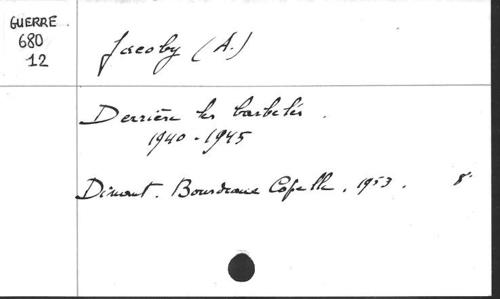 GUERRE.
680
12
Jacoby (A.)
Derrière les barbelés.
1940-1945
Dinant. Bourdeaux Capelle. 1953. 8°